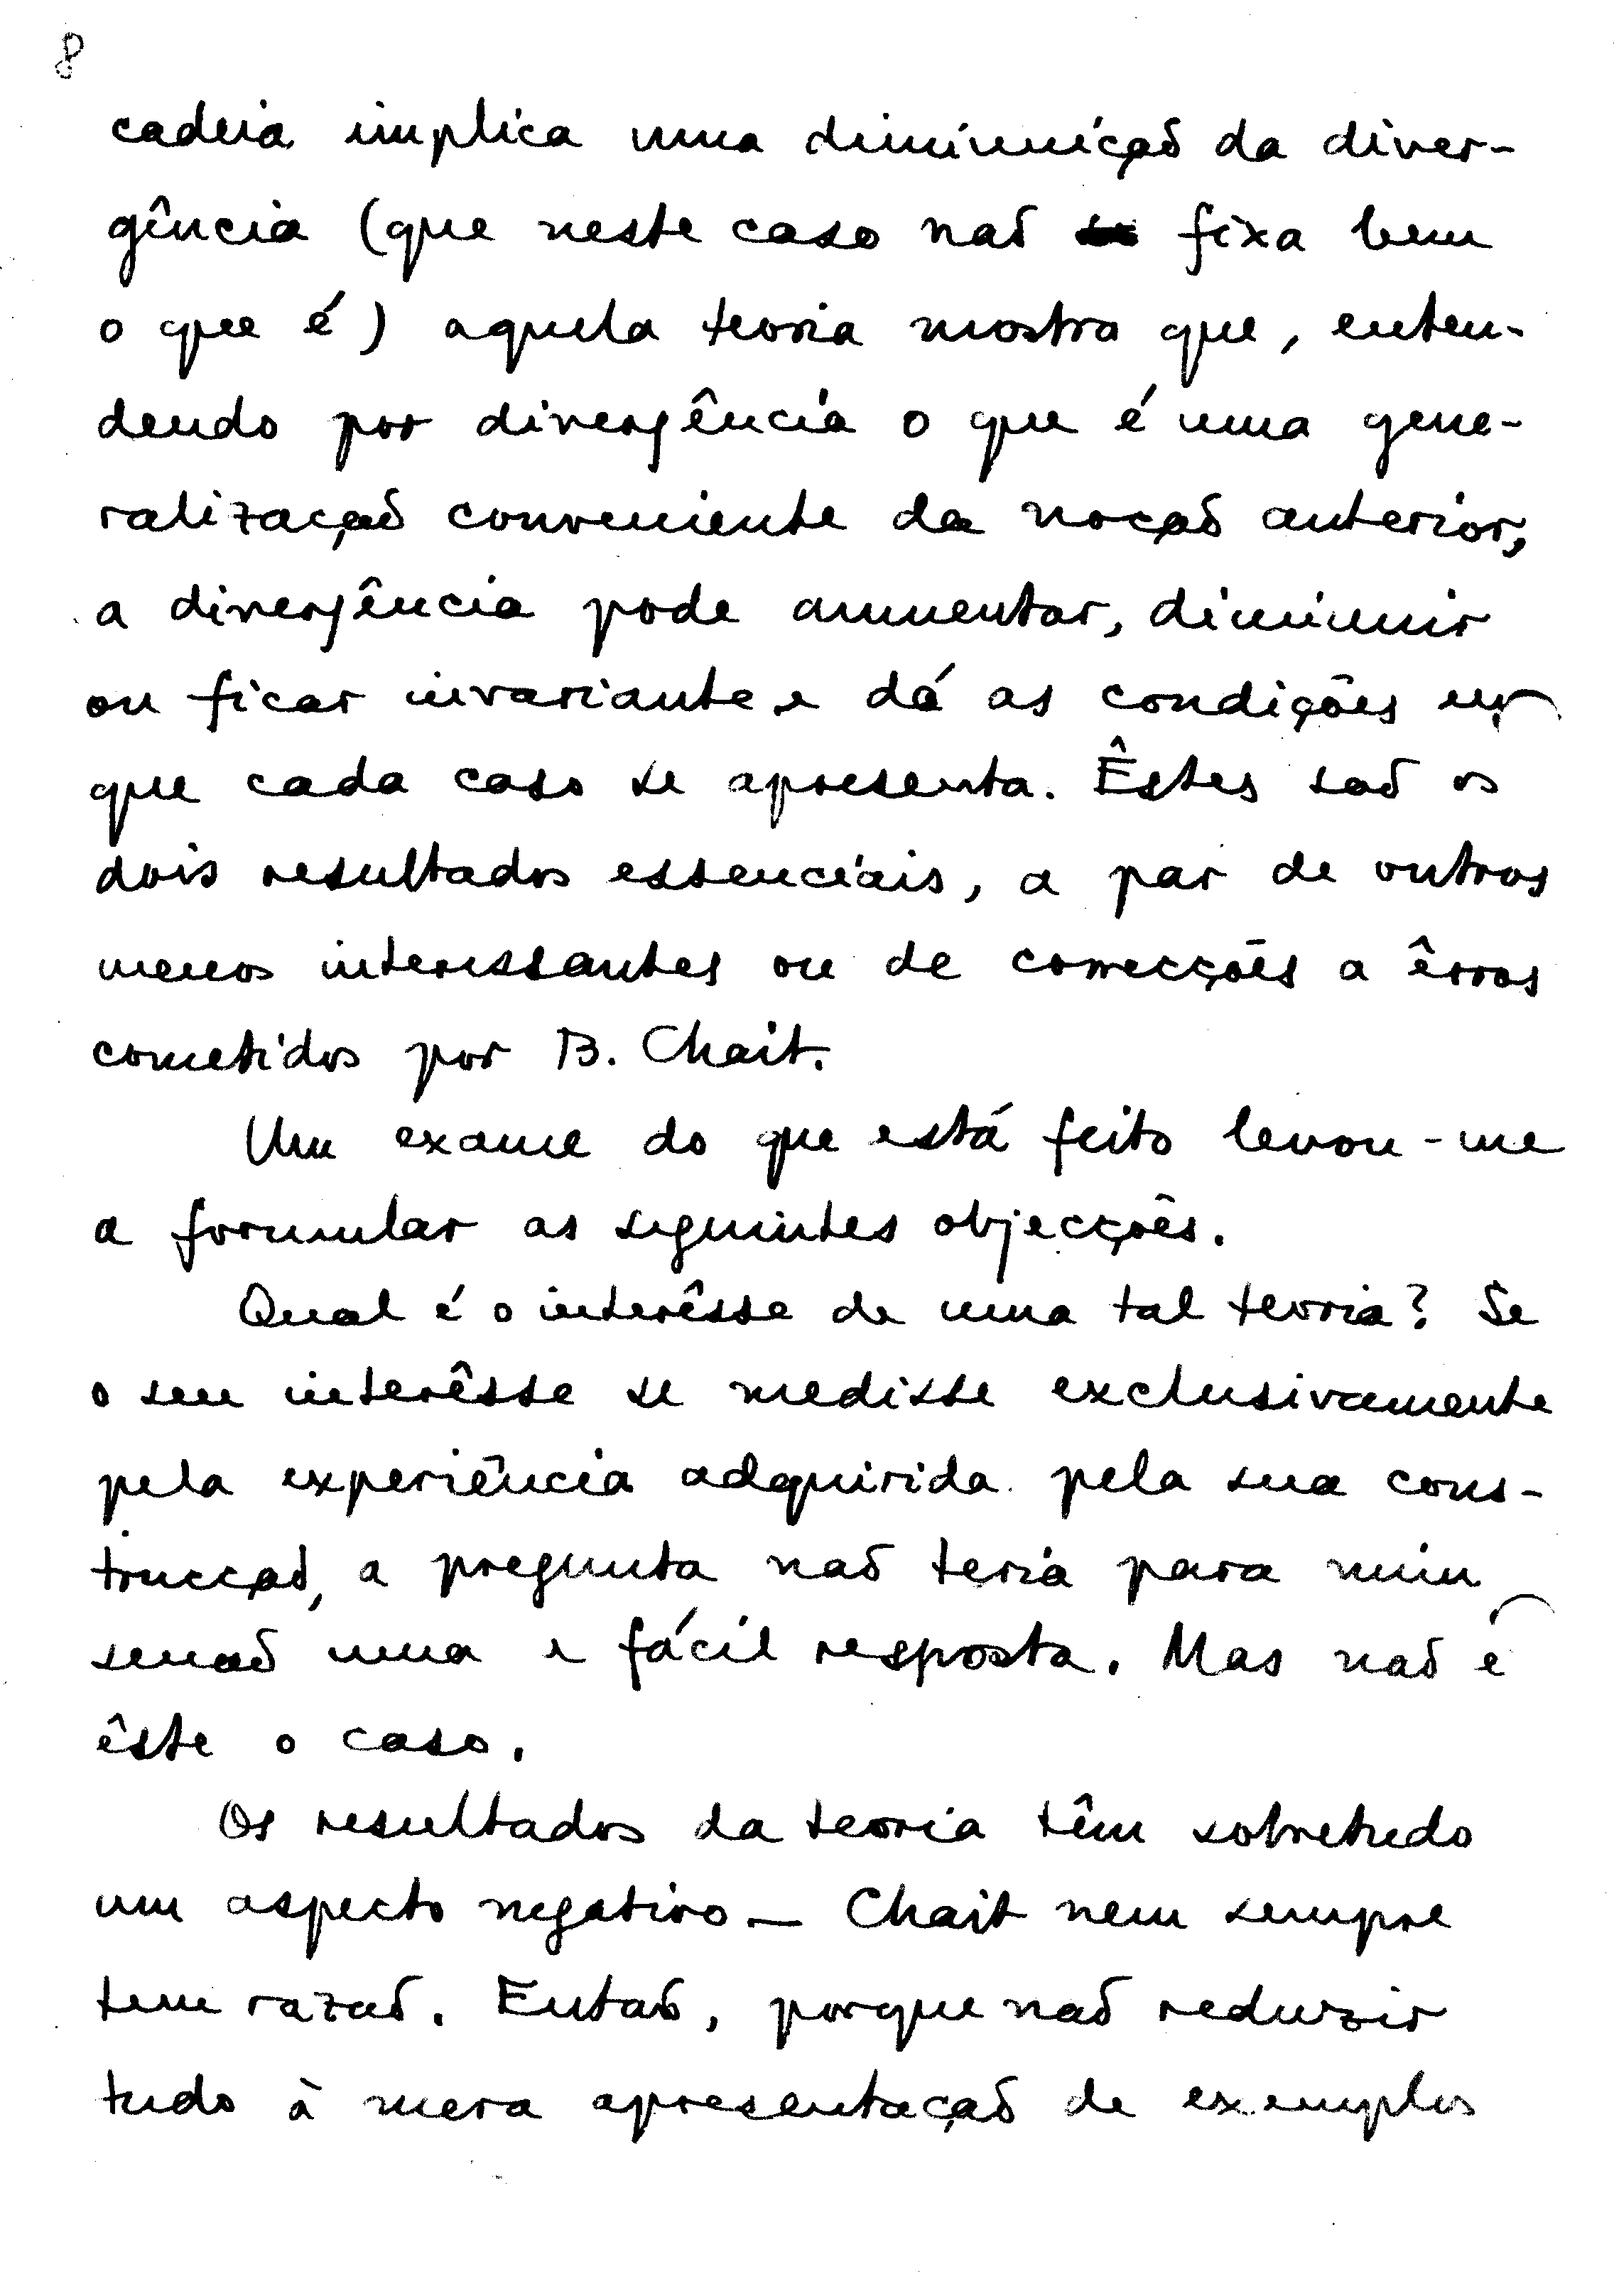 8
cadeia implica uma diminuição da diver-
gência (que neste caso não fixa bem
o que é) aquela teoria mostra que, enten-
dendo por divergência o que é uma gene-
ralização conveniente da noção anterior,
a divergência pode aumentar, diminuir
ou ficar invariante e dá as condições em
que cada caso se apresenta. Êstes são os
dois resultados essenciais, a par de outros
menos interessantes ou de correcções a êrros
cometidos por B. Chait.
Um exame do que está feito levou-me
a formular as seguintes objecções.
Qual é o interêsse de uma tal teoria? Se
o seu interêsse se medisse exclusivamente
pela experiência adquirida pela sua cons-
trucção, a pregunta não teria para mim
senão uma e fácil resposta. Mas não é
êste o caso.
Os resultados da teoria têm sobretudo
um aspecto negativo — Chait nem sempre
tem razão. Então, porque não reduzir
tudo à mera apresentação de exemplos